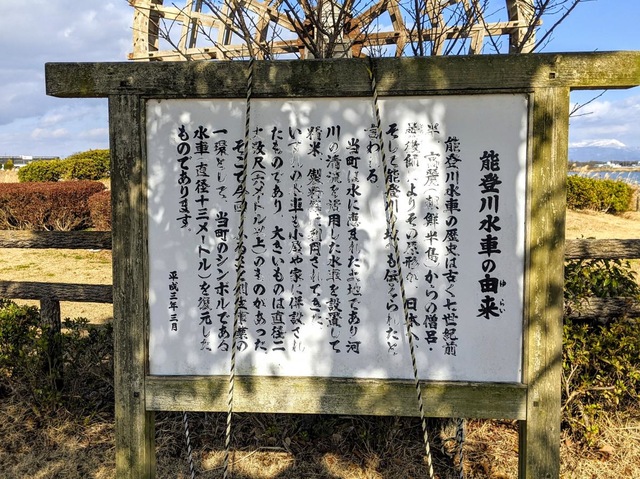 能登川水車の由来
ゆらい
能登川水車の歴史は古く七世紀前
半、高麗(朝鮮半島)からの僧呂・
曇徴師によりその原形が日本へ
そして能登川 も伝えられたと
言われる
当町は水に恵まれた土地であり河
川の清流を活用した水車を設置して
精米、製粉等に利用されてきた
いずれの水車も小屋や家に併設され
たものであり、大きいものは直径二
十数尺(六メートル以上)のものがあった
そこで今回
一環として、当町のシンボルである
水車(直径十三メートル)を復元した
ものであります。
平成三年三月